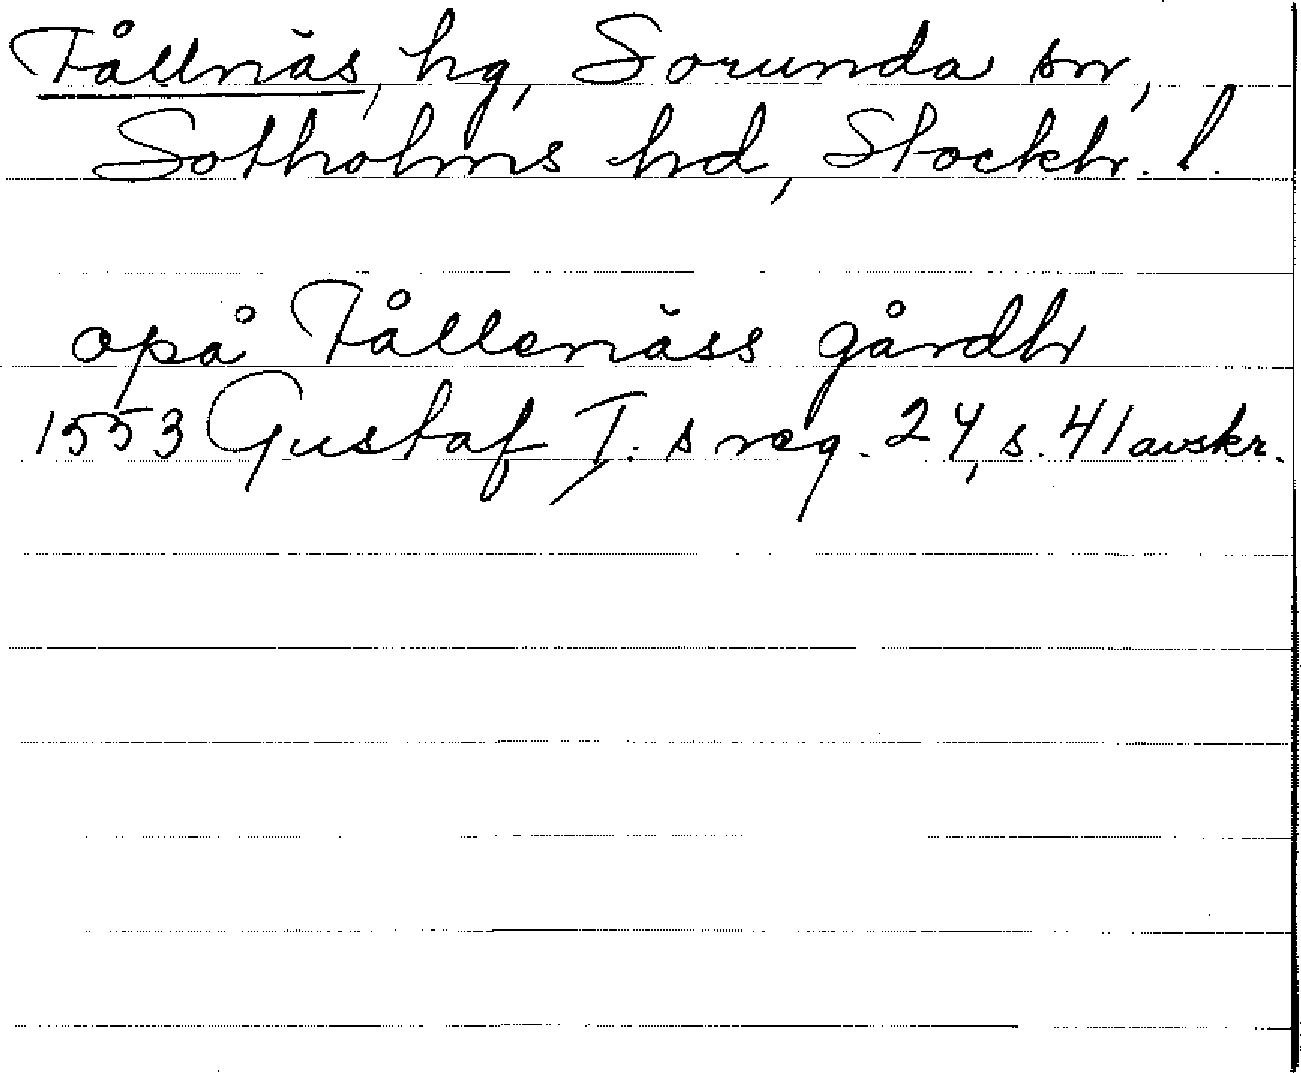 Fållnäs, hg, Sorunda sn,
Sotholms hd, Stockh. l.
opå Fållenäss gårdh
1553 Gustaf I. s reg. 24, s. 41 avskr.